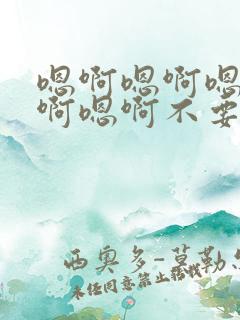 嗯啊嗯啊嗯
啊嗯啊不要
西奥多-莫勒
未经同意禁止转载